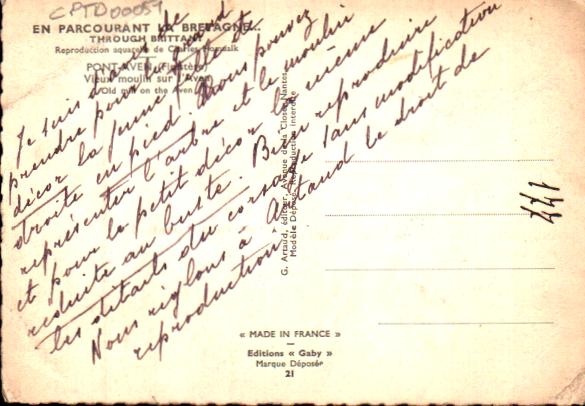 CPTD00059
EN PARCOURANT LA BRETAGNE...
THROUGH BRITTANY
Reproduction aquarelle de Charles Homualk
PONT-AVEN (Finistère)
Vieux moulin sur l'Aven
Old mill on the Aven
Je suis d'accord
prendre pour le
décor la jeune fille de
droite en pied. Vous pouvez
représenter l'arbre et le moulin
et pour le petit décor la même
réduite au buste. Bien reproduire
les détails du corsage sans modification
Nous réglons à Artaud le droit de
reproduction
G. Artaud, éditeur, Avenue de la Close, Nantes
Modèle Déposé, Reproduction interdite
177
« MADE IN FRANCE »
Editions « Gaby »
Marque Déposée
21